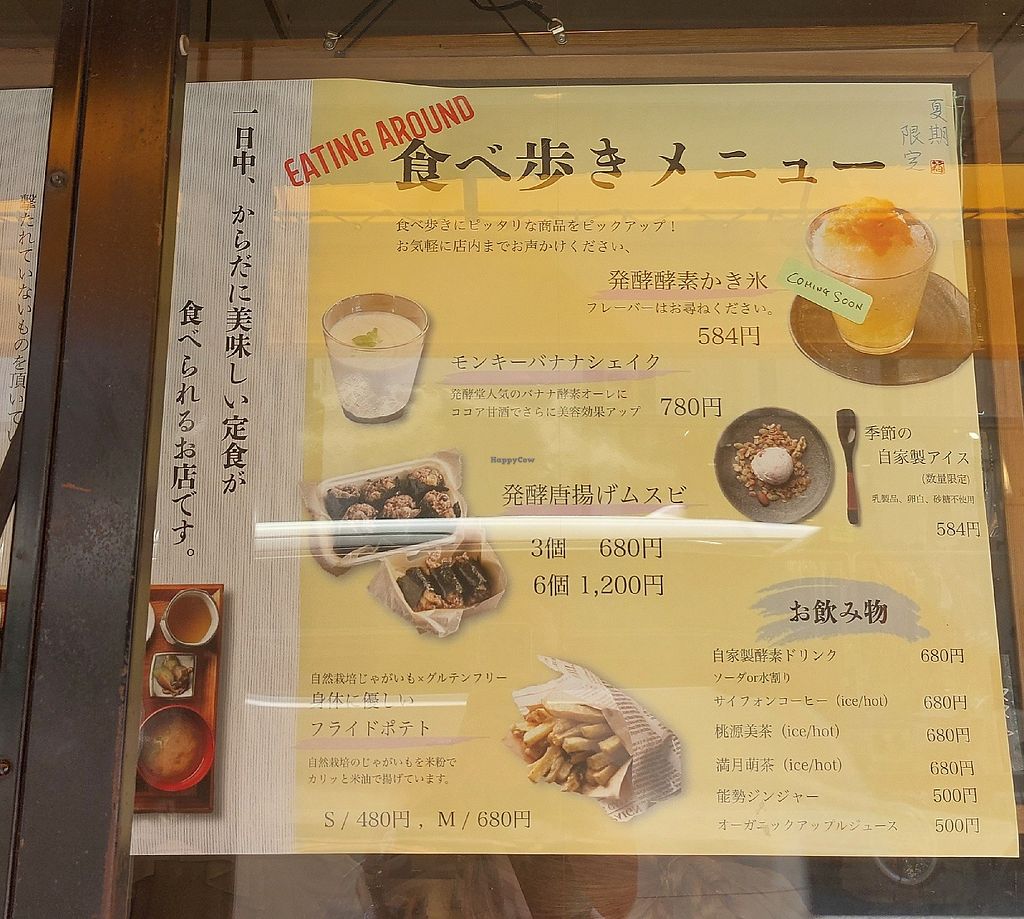 撃たれていないものを頂いてい
一日中、からだに美味しい定食が
食べられるお店です。
EATING AROUND
食べ歩きメニュー
夏期
限定
食べ歩きにピッタリな商品をピックアップ！
お気軽に店内までお声かけください、
発酵酵素かき氷
フレーバーはお尋ねください。
584円
COMING SOON
モンキーバナナシェイク
発酵堂人気のバナナ酵素オーレに
ココア甘酒でさらに美容効果アップ
780円
季節の
自家製アイス
(数量限定)
乳製品、卵白、砂糖不使用
584円
HappyCow
発酵唐揚げムスビ
3個 680円
6個 1,200円
自然栽培じゃがいも×グルテンフリー
身体に優しい
フライドポテト
自然栽培のじゃがいもを米粉で
カリッと米油で揚げています。
S / 480円 , M / 680円
お飲み物
自家製酵素ドリンク 680円
ソーダor水割り
サイフォンコーヒー（ice/hot) 680円
桃源美茶（ice/hot) 680円
満月萌茶（ice/hot) 680円
能勢ジンジャー 500円
オーガニックアップルジュース 500円